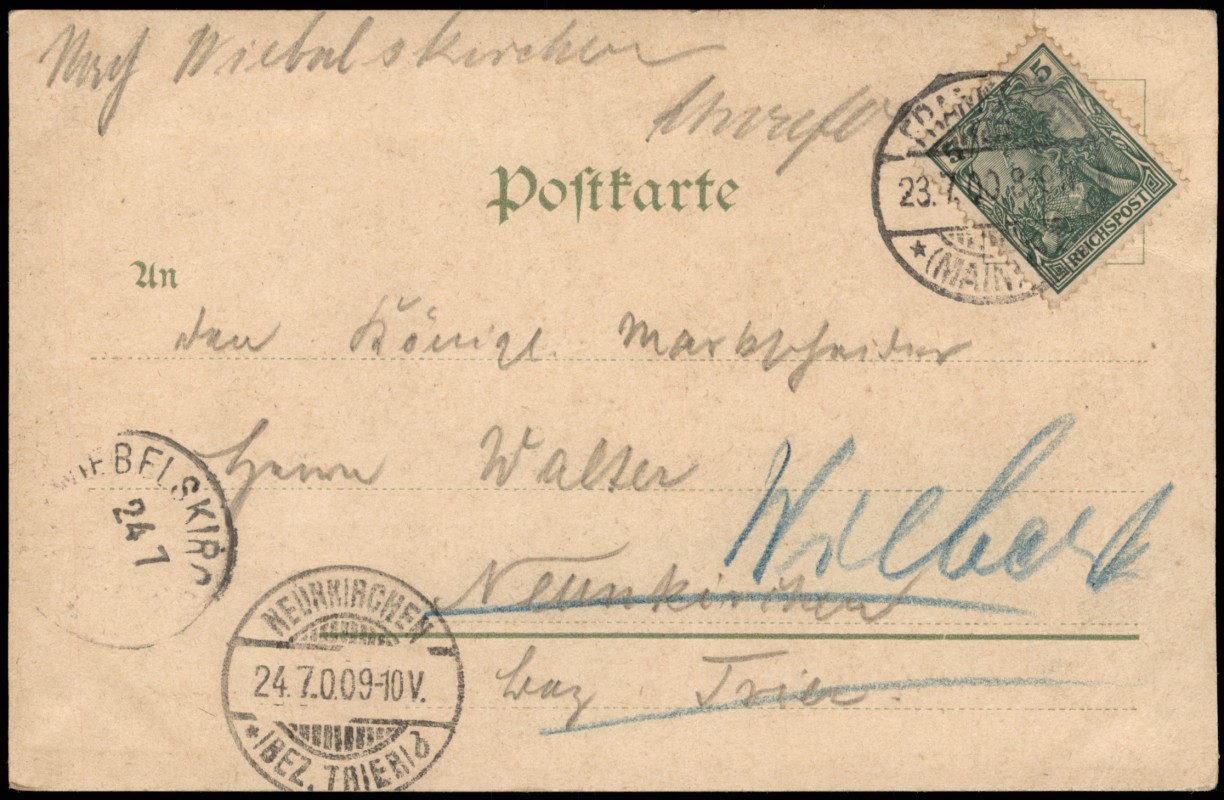 Nach Wiebelskirchen
Postkarte
5
5
REICHSPOST
FRANKF
23.7.00.8-9
* (MAIN)
An
den Königl. Markscheider
Herrn Walter
Neunkirchen
bez Trier
WIEBELSKIRC
24 7
NEUNKIRCHEN
24.7.0.09-10V.
* (BEZ. TRIER) d